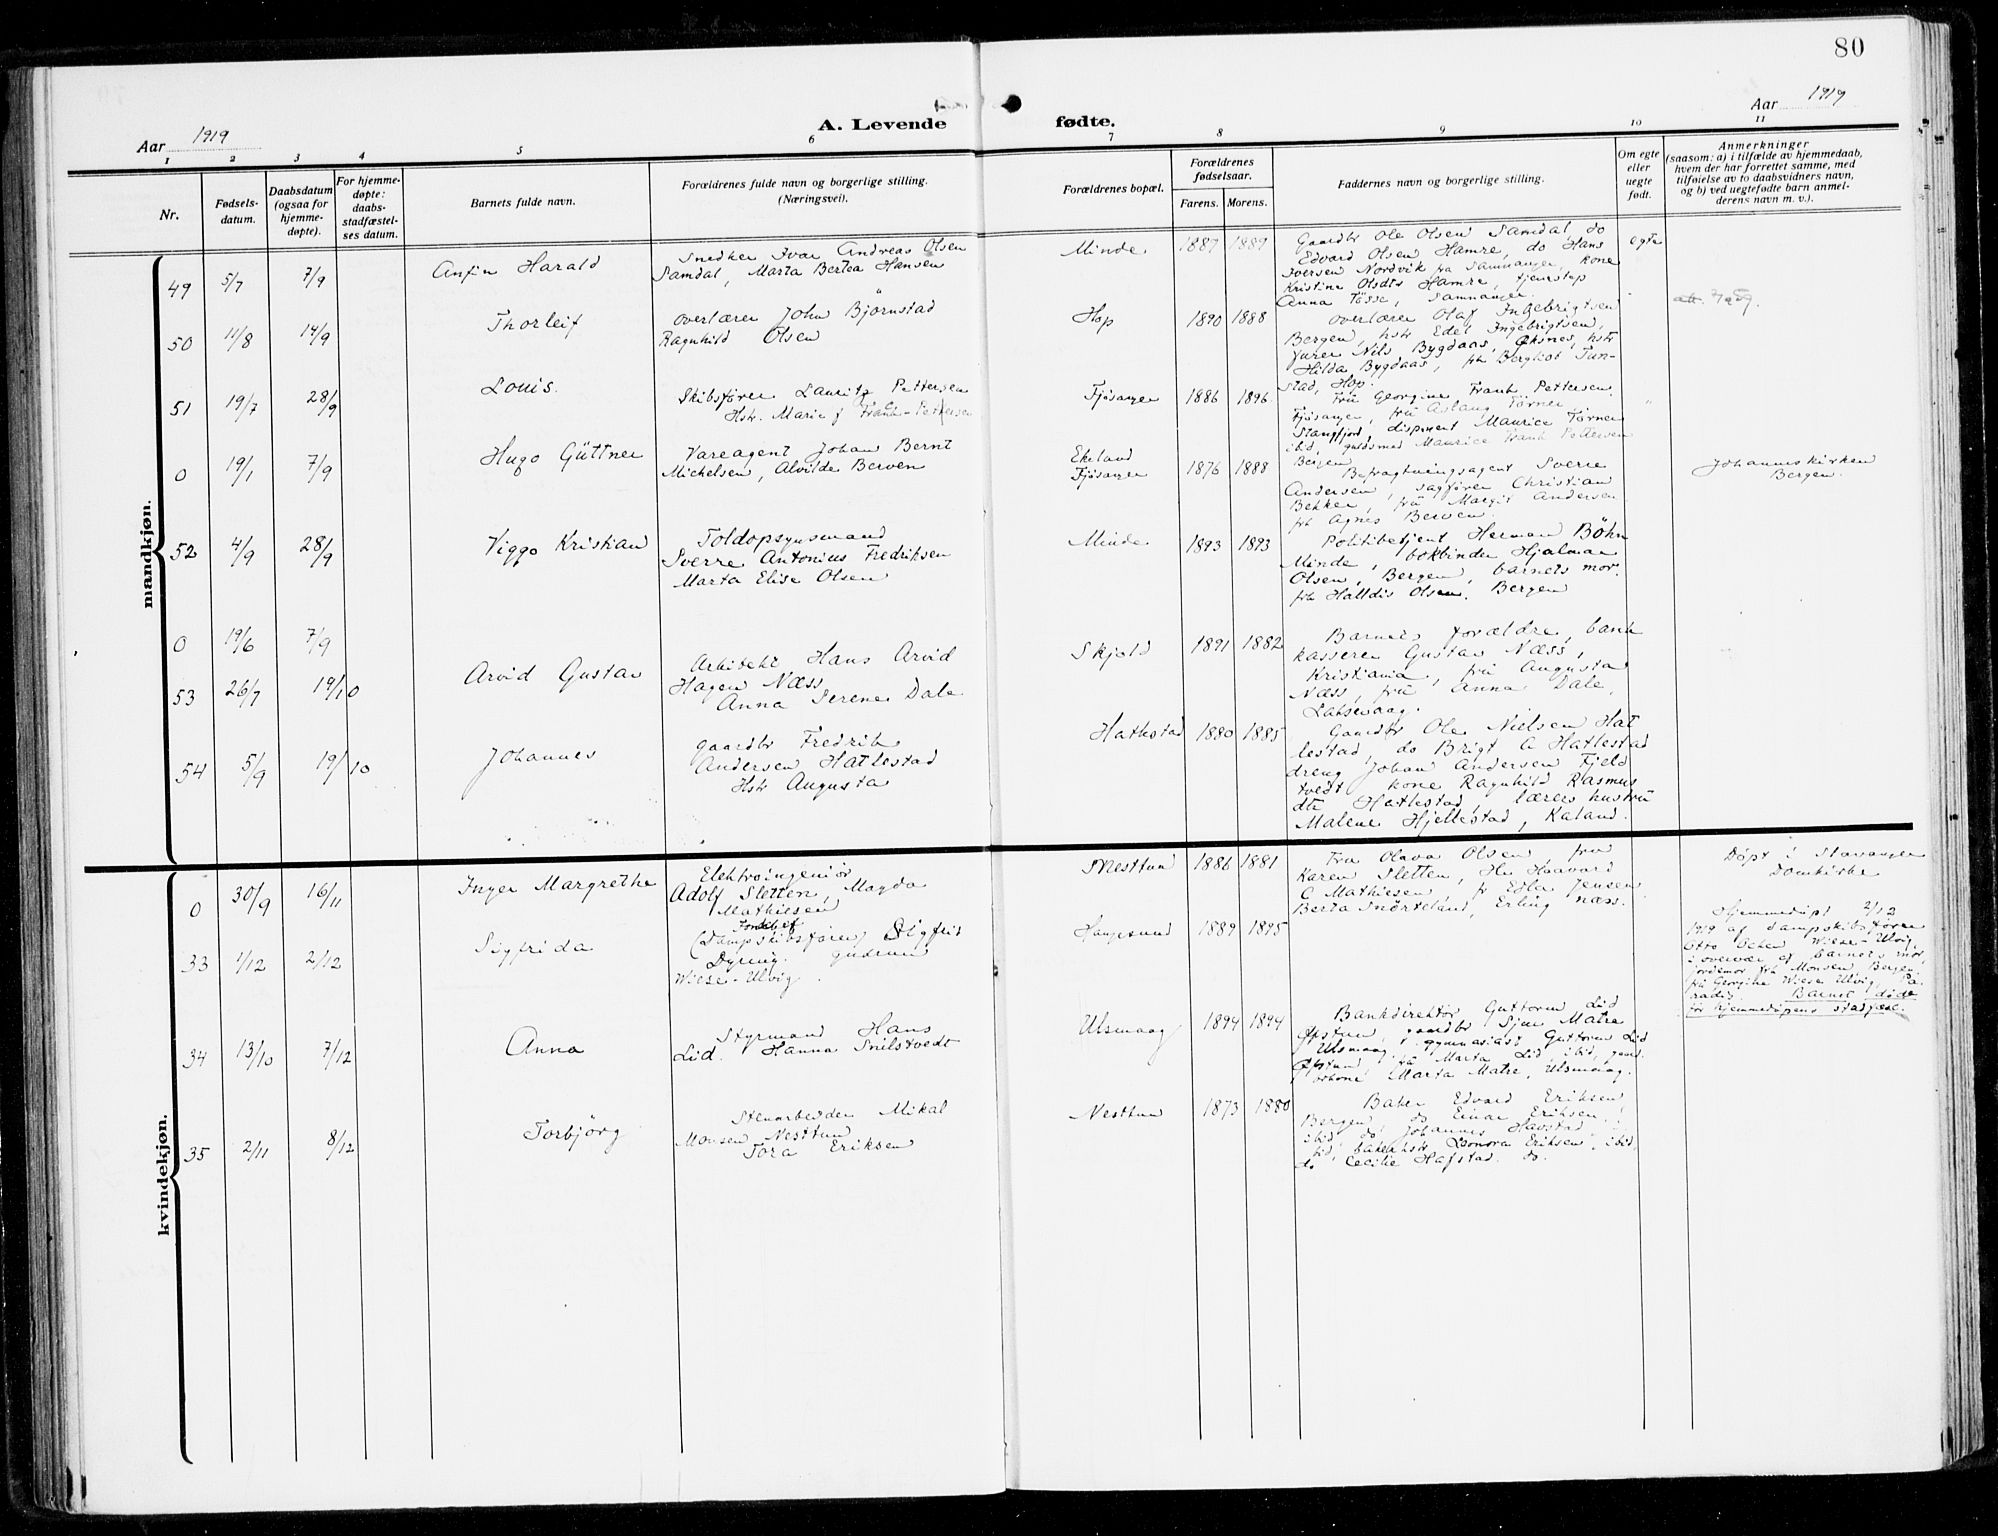 80
Aar 1919
A. Levende fødte.
Aar 1919
1 2 3 4 5 6 7 8 9 10 11
Nr.
Fødsels-
datum.
Daabsdatum
(ogsaa for
hjemme-
døpte).
For hjemme-
døpte:
daabs-
stadfæstel-
ses datum.
Barnets fulde navn.
Forældrenes fulde navn og borgerlige stilling.
(Næringsvei).
Forældrenes bopæl.
Forældrenes
fødselsaar.
Farens. Morens.
Faddernes navn og borgerlige stilling.
Om egte
eller
uegte
født.
Anmerkninger
(saasom: a) i tilfælde av hjemmedaab,
hvem der har forrettet samme, med
tilføielse av to daabsvidners navn,
og b) ved uegtefødte barn anmel-
derens navn m. v.).
mandkjøn.
49 5/7 7/9
Anfin Harald
Snedker Ivar Andreas Olsen
Samdal, Marta Bertea Hansen
Minde 1887 1889
Gaardbr Ole Olsen Samdal, do
Edvard Olsen Hamre, do Hans
Iversen Nordvik fra Samnanger, kone
Kristine Olsdtr Hamre, tjenestep
Anna Tösse, Samnanger.
egte
50 11/8 14/9
Thorleif
overlærer John Björnstad
Ragnhild Olsen
Hop 1890 1888
overlærer Olaf Ingebrigtsen
Bergen, hstr Edel Ingebrigtsen,
furer Nils Bygdaas, Öksnes, hstr
Hilda Bygdaas, frk Bergliot Tun-
stad, Hop.
51 19/7 28/9
Louis.
Skibsfører Lauritz Pettersen
Hstr. Marie f Frank-Pettersen
Fjösanger 1886 1896
Frü Georgine Frank Pettersen,
Fjösanger, frü Aslaug Törner
Stangfjord, disponent Maurice Törner
ibid, guldsmed Maurice Frank Pettersen
Bergen
"
0 19/1 7/9
Hugo Güttner
Vareagent Johan Bernt
Michelsen, Alvilde Berven
Ekeland
Fjösanger 1876 1888
Befragtningsagent Sverre
Andersen, sagfører Christian
Bekker, frü Margit Andersen
frk Agnes Berven.
Johanneskirken
Bergen.
52 4/9 28/9
Viggo Kristian
Toldopsynsmand
Sverre Antonius Fredriksen
Marta Elise Olsen
Minde 1893 1893
Politibetjent Herman Böhn
Minde, bokbinder Hjalmar
Olsen, Bergen, barnets mor.
frk Halldis Olsen. Bergen
0 19/6 7/9
53 26/7 19/10
Arvid Gustav
Arkitekt Hans Arvid
Hagen Næss
Anna Serene Dale
Skjold 1891 1882
Barnets forældre, bank
kasserer Gustav Næss,
Kristiania, frü Augusta
Næss, frü Anna Dale,
Laksevaag.
54 5/9 19/10
Johannes
gaardbr Fredrik
Andersen Hatlestad
Hstr Augusta
Hatlestad 1880 1885
Gaardbr Ole Nielsen Hat
lestad, do Brigt A Hatlestad
dreng Johan Andersen Fjeld
tvedt kone Ragnhild Rasmus
dtr Hatlestad, lærers hustrü
Malene Hjellestad, Kaland.
kvindekjøn.
0 30/9 16/11
Inger Margrethe
Elektroingeniör
Adolf Sletten, Magda
Mathiesen
Nesttun 1886 1881
Fru Olava Olsen fru
Karen Sletten, Hr Haavard
C Mathiesen, fr Edla Jensen
Berta Snörteland, Erling Næss.
Döpt i Stavanger
Domkirke
33 1/12 2/12
Sigfrida
(Dampskibsfører) Sigfrid
Dyring. Gudrun
Wiese-Ulvig
Haugesund 1889 1895
Hjemmedöpt 2/12
1919 af dampskibsfører
Otto Wiese-Ulvig,
i overvær af barnets mor,
jordemor frk Monsen Bergen
frü Georgine Wiese Ulvig, Pa-
radis. Barnet döde
før hjemmedaapens stadfæst.
34 13/10 7/12
Anna
Styrmand Hans
Lid. Hanna Snilstvedt
Ulsmaag 1894 1894
Bankdirektör Guttorm Lid
Öystun, gaardbr Sjur Matre
Ulsmaag, gymnasiast Guttorm Lid
Öystun, frü Marta Lid, ibid, gaard-
brkone Marta Matre, Ulsmaag.
35 2/11 8/12
Torbjörg
Stenarbeider Mikal
Monsen Nesttun
Tora Eriksen
Nesttun 1873 1880
Baker Edvard Eriksen,
Bergen do Einar Eriksen
ibid, do Johannes Havstad
ibid, bakerhstr Leonora Eriksen, ibid,
do Cecilie Hafstad. do.